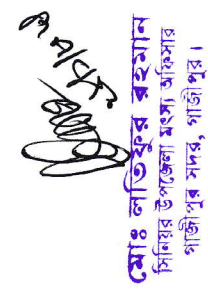 মোঃ লতিফুর রহমান
সিনিয়র উপজেলা মৎস্য অফিসার
গাজীপুর সদর, গাজীপুর।